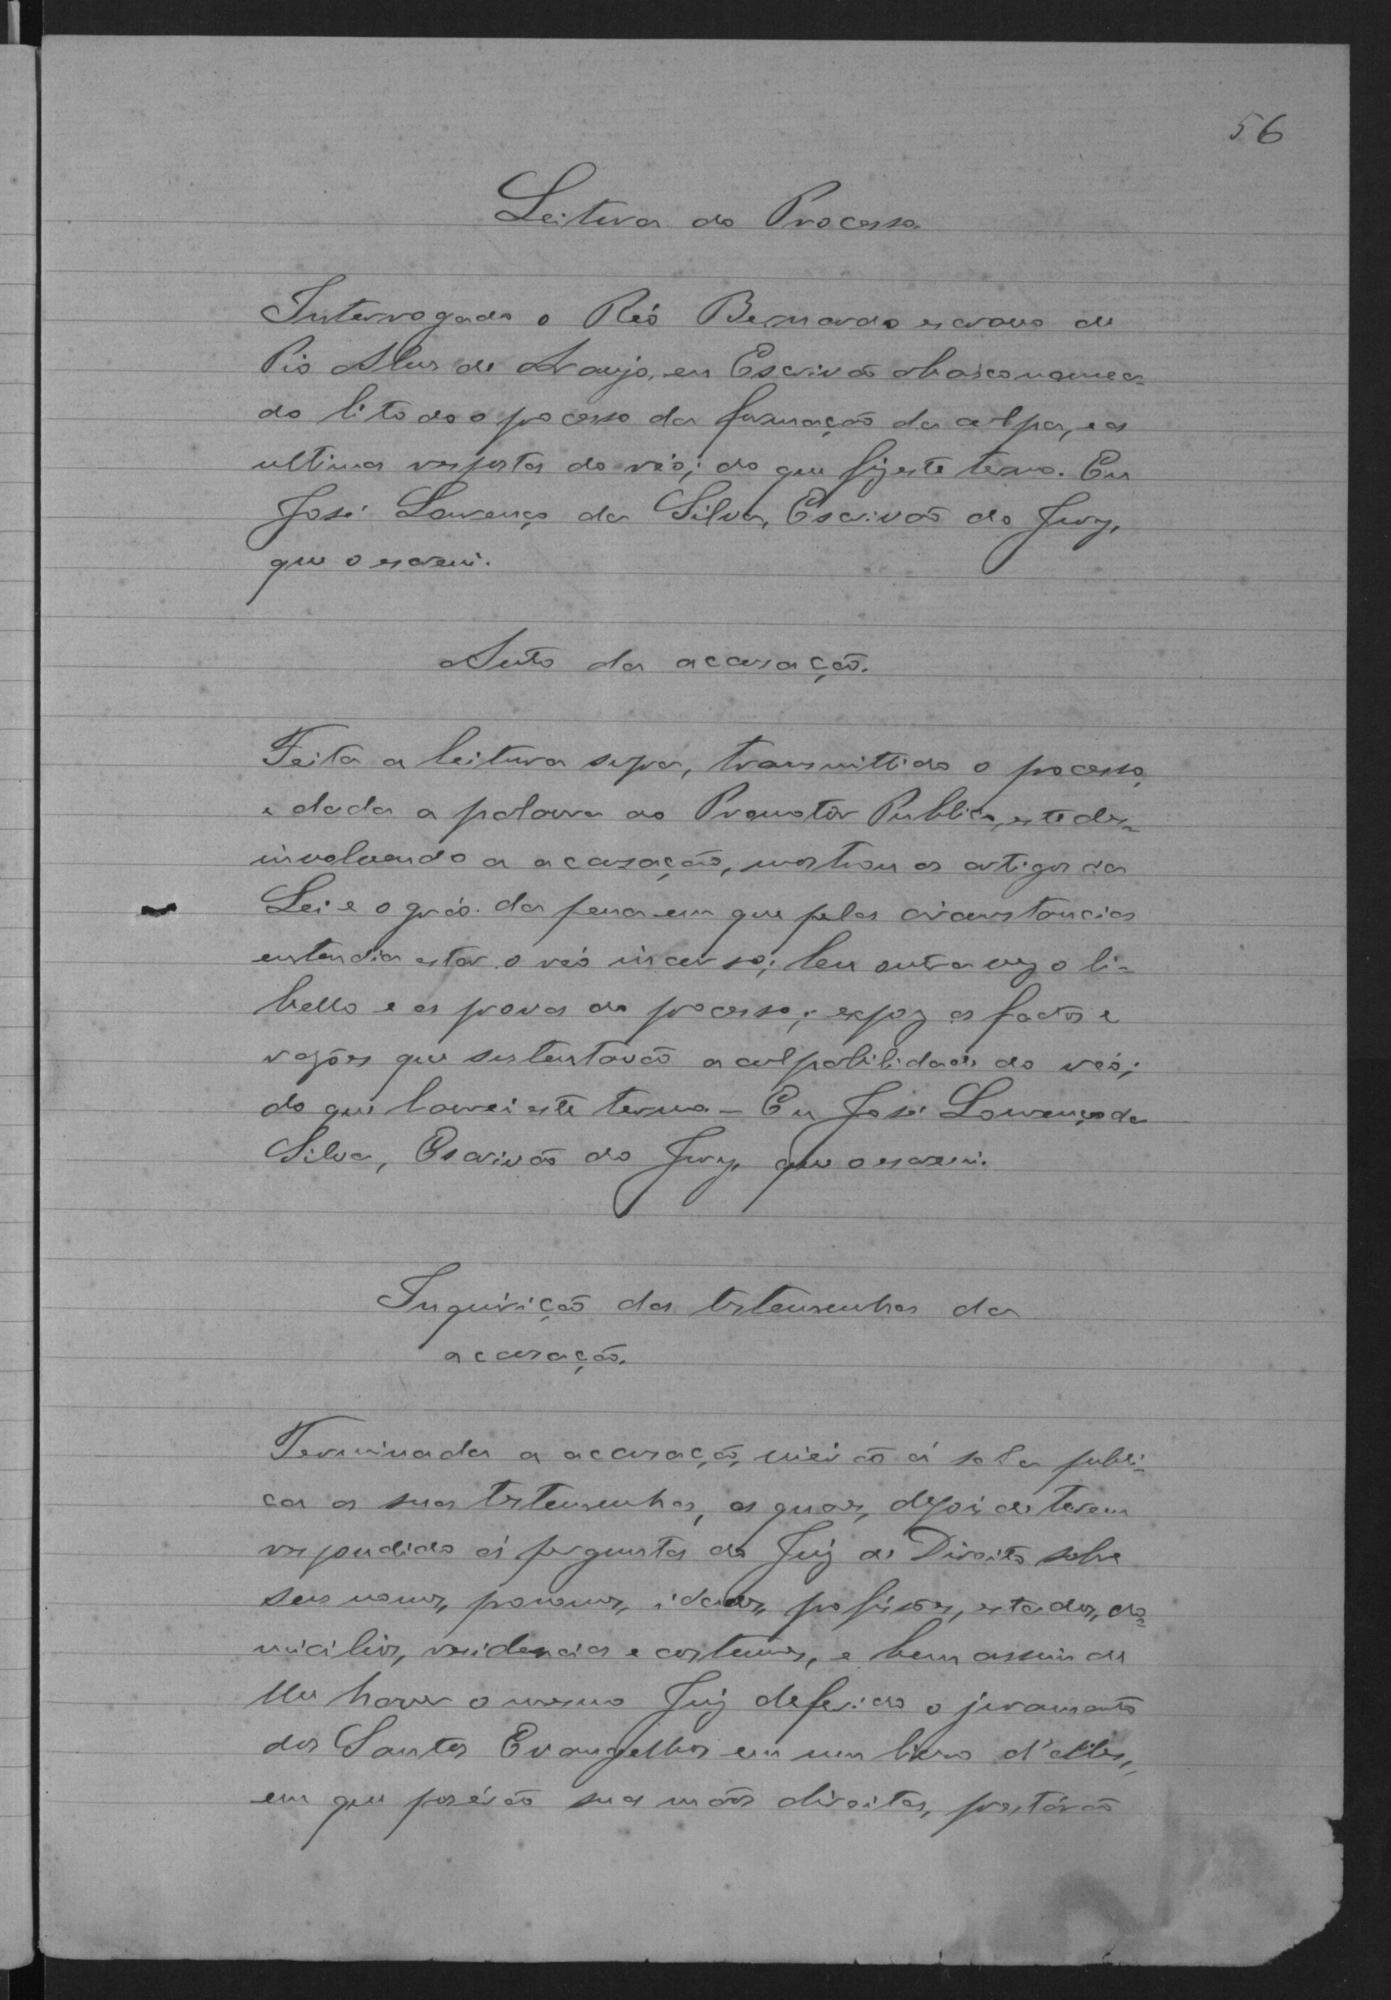 56
Leitura do Processo
Interrogado o Réo Bernardo escravo de
Pio Alves de Araujo, eu Escrivão abaixo nomea-
do li todo o processo da formação da culpa, e as
ultimas respostas do réo; do que fiz este termo. Eu
José Lourenço da Silva, Escrivão do Jury,
que o escrevi.
Auto da accusação.
Feita a leitura supra, transmittido o processo,
e dada a palavra ao Promotor Publico, este des-
involvendo a accusação, mostrou os artigos da
Lei e o gráo da pena em que pelas circunstancias
entendia estar o réo incurso; leu outra vez o li-
bello e as provas do processo; expoz os factos e
razões que sustentavão a culpabilidade do réo;
do que lavrei este termo - Eu José Lourenço da
Silva, Escrivão do Jury, que o escrevi.
Inquirição das testemunhas da
accusação.
Terminada a accusação, vierão á sala publi-
ca as suas testemunhas, as quaes, depois de terem
respondido ás perguntas do Juiz de Direito sobre
seus nomes, pronomes, idades, profissões, estados, do-
micilios, residencias e costumes, e bem assim de
lhes haver o mesmo Juiz deferido o juramento
dos Santos Evangelhos em um livro d'elles,
em que poserão suas mãos direitas, prestárão